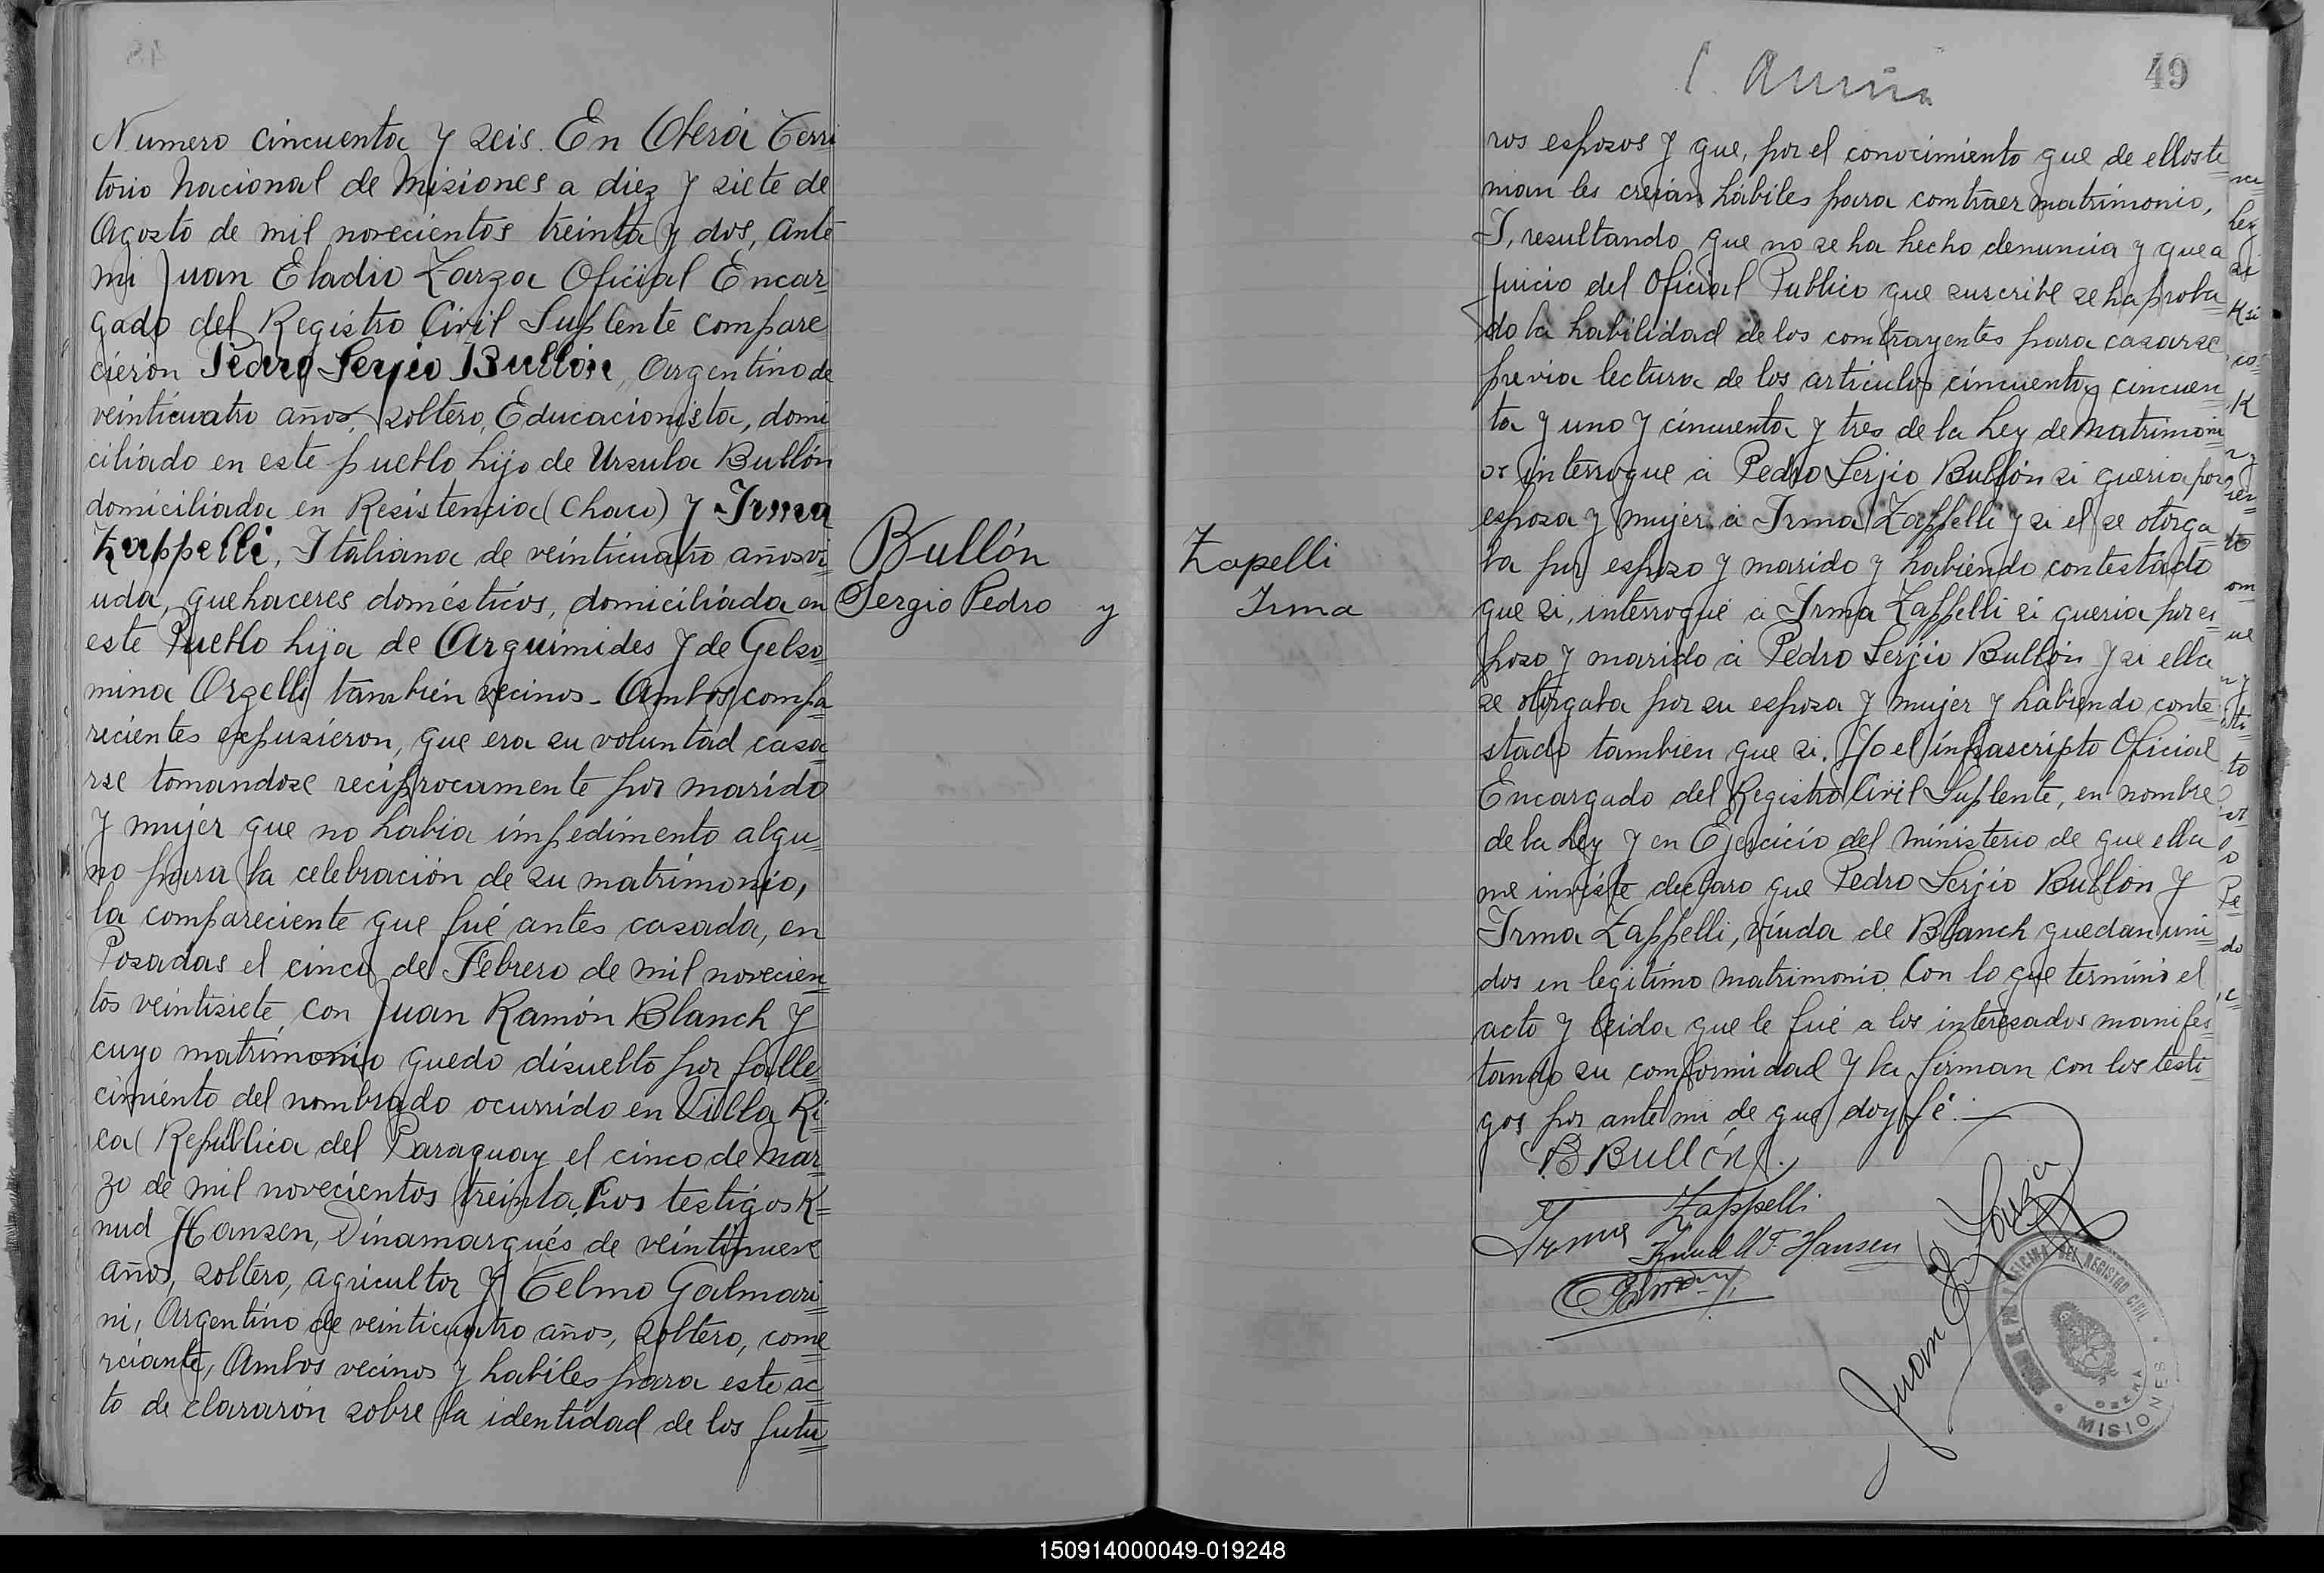 Numero cincuenta y seis. En Oberá Terri
torio Nacional de Misiones a diez y siete de
Agosto de mil novecientos treinta y dos, ante
mi Juan Eladio Zarza Oficial Encar=
gado del Registro Civil Suplente compare
cierón Pedro Serjio Bullón, Argentino de
veinticuatro años, soltero, Educacionista, domi
ciliado en este pueblo hijo de Ursula Bullón
domiciliada en Resistencia (Chaco) y Irma
Zappelli, Italiana de veinticuatro años vi=
uda, quehaceres domésticos, domiciliada en
este Pueblo hija de Arquimides y de Gelso=
mina Orzelli tambien vecinos - Ambos compa=
recientes expusieron, que era su voluntad casa=
rse tomandose reciprocamente por marido
y mujer que no habia impedimento algu=
no para la celebración de su matrimonio,
la compareciente que fué antes casada, en
Posadas el cinco de Febrero de mil novecien=
tos veintisiete con Juan Ramón Blanch y
cuyo matrimonio quedo disuelto por falle=
cimiento del nombrado ocurrido en Villa Ri=
ca (Republica del Paraguay el cinco de Mar=
zo de mil novecientos treinta. Los testigos K=
nud Hansen, Dinamarqués de veintinueve
años, soltero, agricultor y Telmo Galmari=
ni, Argentino de veinticuatro años, soltero, come=
rciante, Ambos vecinos y habiles para este ac=
to declararón sobre la identidad de los futu=
Bullón
Sergio Pedro y
Zapelli
Irma
49
ros esposos y que, por el conocimiento que de ellos te=
nian les creian hábiles para contraer matrimonio,
I, resultando que no se ha hecho denuncia y que a
juicio del Oficial Publico que suscribe se ha proba=
do la habilidad de los contrayentes para casarse
previa lectura de los articulos cincuenta, cincuen=
ta y uno y cincuenta y tres de la Ley de Matrimoni=
or interrogue á Pedro Serjio Bullón si queria por
esposa y mujer á Irma Zappelli y si el se otorga=
ba por esposo y marido y habiendo contestado
que si, interrogué á Irma Zappelli si queria por es=
poso y marido á Pedro Serjio Bullón y si ella
se otorgaba por su esposa y mujer y habiendo conte=
stado tambien que si. Yo el infrascripto Oficial
Encargado del Registro Civil Suplente, en nombre
de la Ley y en Ejercicio del ministerio de que ella
me inviste declaro que Pedro Serjio Bullon y
Irma Zappelli, viuda de Blanch quedan uni=
dos en legitimo matrimonio. Con lo que terminó el
acto y leida que le fué a los interesados manifes=
tando su conformidad y la firman con los testi=
gos por ante mi de que doy fé.
Bullón
Irma Zappelli
Knud Hansen
Juan E. Zarza
OFICINA DEL REGISTRO CIVIL
OBERA
MISIONES
150914000049-019248